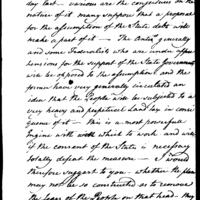 day last — various are the conjectures on the
nature of it many suppose that a proposal
for the assumption of the State debts will
make a part of it — The Antis generally
and some Federalists who are under appre-
hensions for the support of the State Governments
will be opposed to the assumption & and the
former have very generally circulated an
idea that the People will be subjected to a
very heavy and perpetual Land tax in conse
quence of it — this is a most powerful
Engine with which to work and
if the consent of the States is necessary
totally defeat the measure — I would
therefore suggest to you — whether the plan
may not be so constructed as to remove
the fears of the People on that head. they